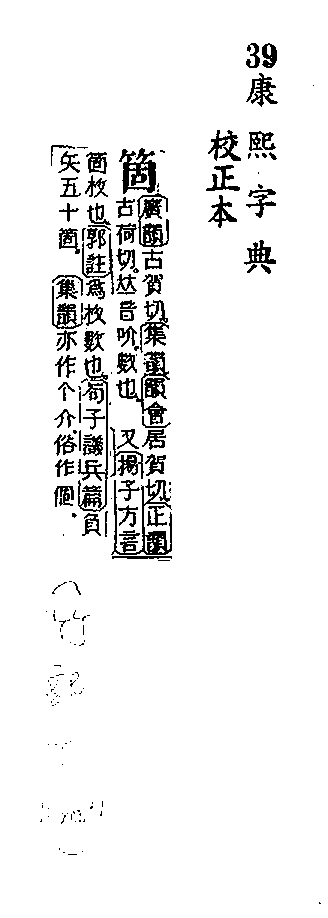 39康熙字典
校正本
箇
廣韻古賀切集韻韻會居賀切正韻
古荷切𠀤音個數也 又揚子方言
箇枚也郭註爲枚數也荀子議兵篇負
矢五十箇。集韻亦作个介俗作個。